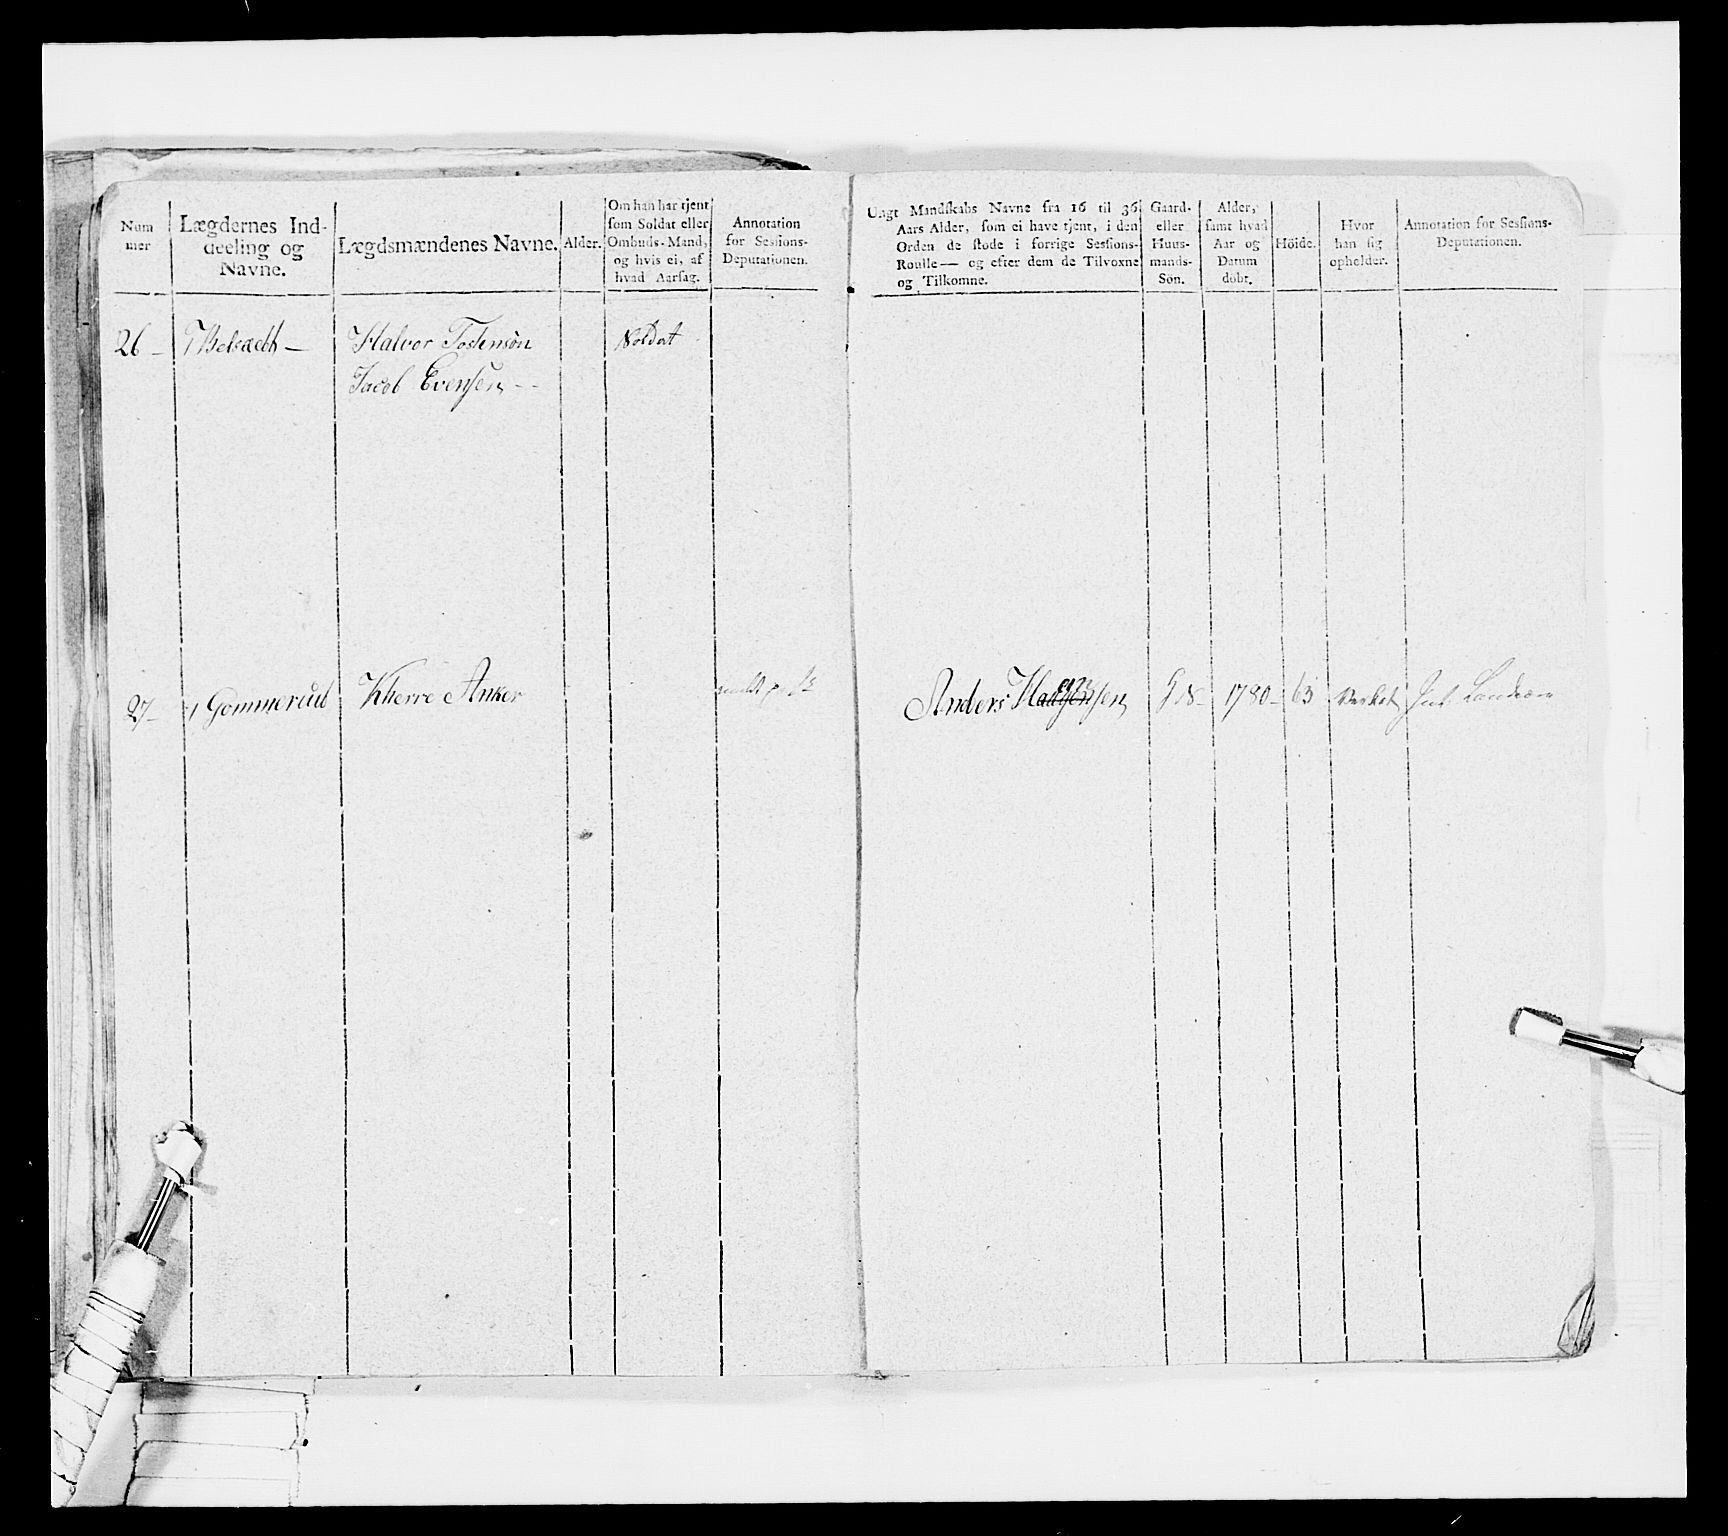 Num
mer
Lægdernes Ind-
deeling og
Navne.
Lægdsmændenes Navne.
Alder.
Om han har tjent
som Soldat eller
Ombuds-Mand,
og hvis ei, af
hvad Aarsag.
Annotation
for Sessions-
Deputationen.
Ungt Mandskabs Navne fra 16 til 36
Aars Alder, som ei have tjent, i den
Orden de stode i forrige Sessions-
Roulle— og efter dem de Tilvoxne
og Tilkomne.
Gaard-
eller
Huus-
mands-
Sön.
Alder,
samt hvad
Aar og
Datum
döbt.
Höide.
Hvor
han sig
opholder.
Annotation for Sessions-
Deputationen.
26 — Halvor Tostensön Soldat
Jacob Evensen --
27— Gommerud Kherre Anker
Anders G S— 1780— 63 Verket